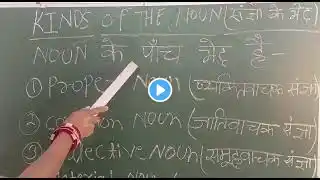 KINDS OF THE NOUN (संज्ञा के भेद)
NOUN के पाँच भेद है -
① Proper Noun (व्यक्तिवाचक संज्ञा)
② common NOUN (जातिवाचक संज्ञा)
③ collective NOUN (समूहवाचक संज्ञा)
material Noun